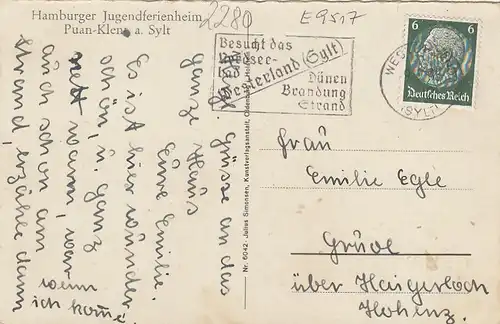 Hamburger Jugendferienheim
Puan-Klent a. Sylt
2280
E9517
Besucht das
Nordsee-
bad
Westerland (Sylt)
Dünen
Brandung
Strand
(SYLT)
6
6
Deutsches Reich
Es ist hier wunder
schön, u. ganz
nett warm, war
auch schon am
Strand, erzähle dann
wenn
ich kome.
Grüsse an das
ganze Haus
Eure Emilie.
Nr. 6042 Julius Simonsen, Kunstverlagsanstalt, Oldenburg i. Holstein
Frau
Emilie Egle
Gruol
über Haigerloch
Hohenz.